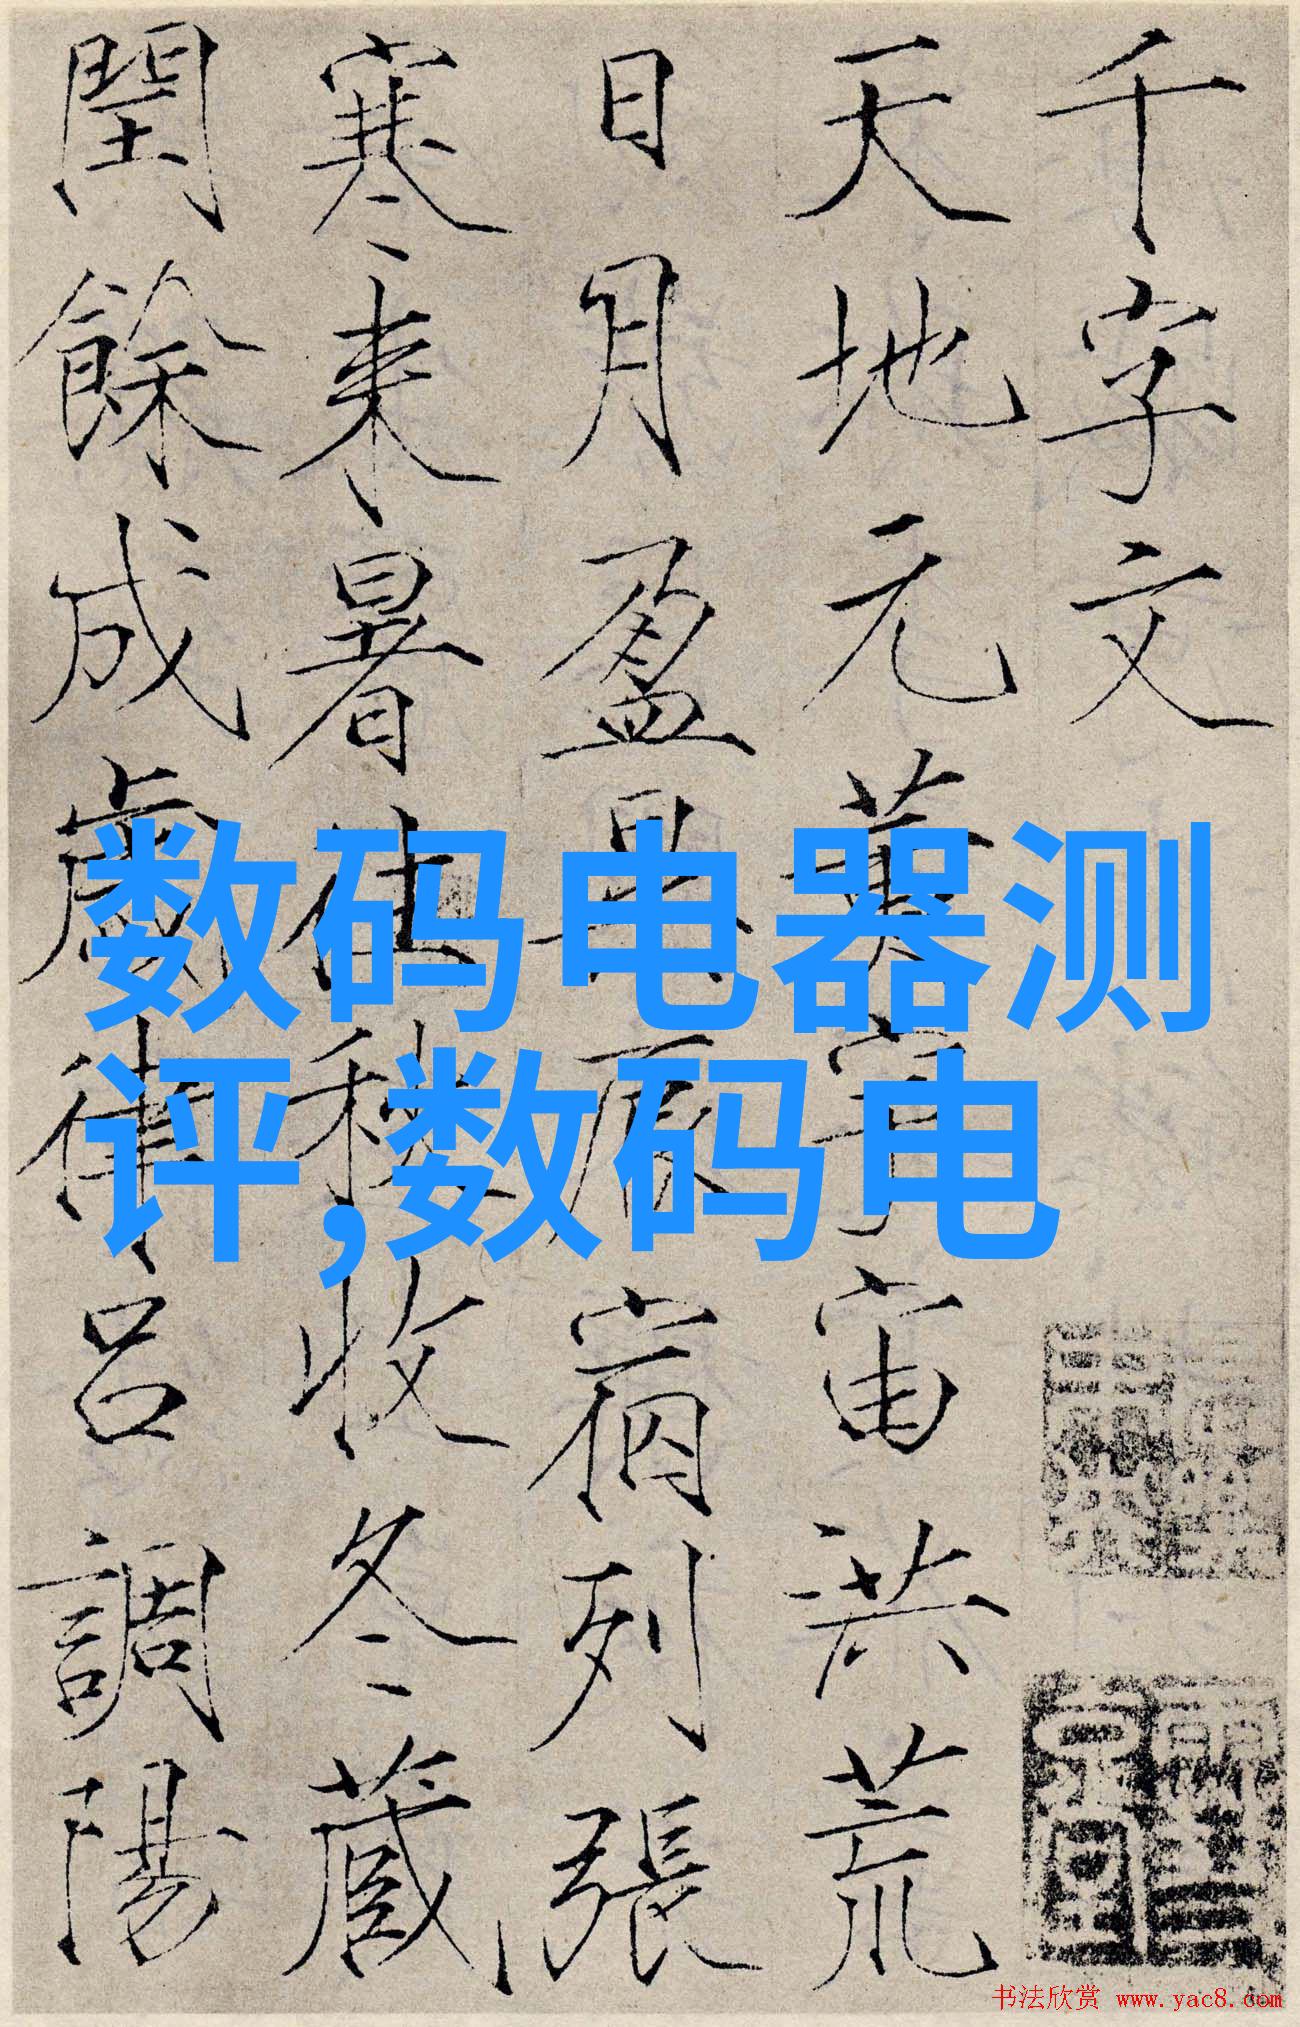 千字文
天地元黄宇宙洪荒
日月盈昃辰宿列張
寒来暑往秋收冬蔵
閏餘成歲律呂調陽
数码电器测
评,数码电
书法欣赏 www.yac8.com